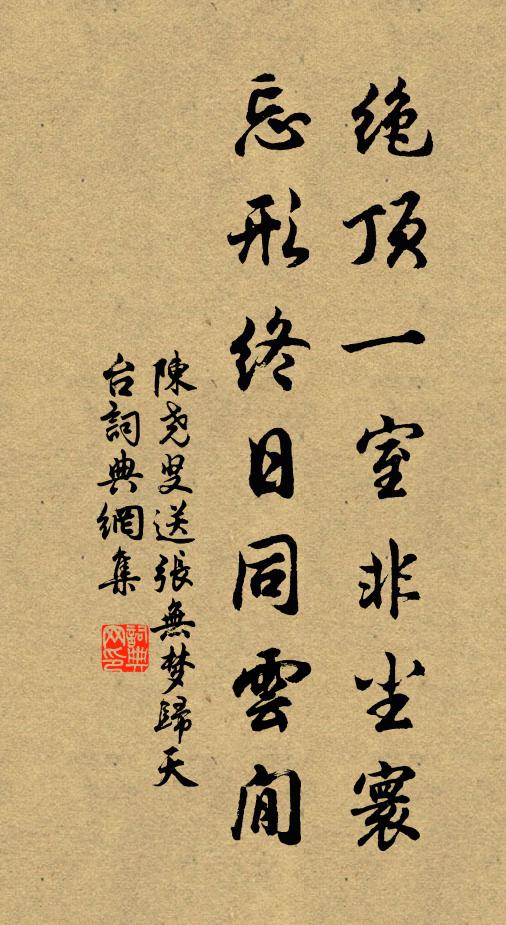 绝顶一室非尘寰
忘形终日同雲闲
陳尧叟送張無梦歸天
台詞典網集
詞典
网印